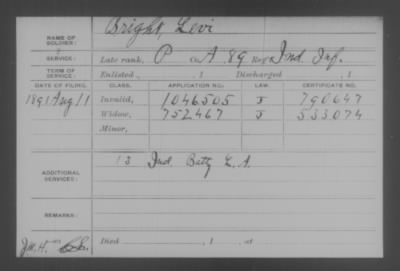 NAME OF SOLDIER: Bright, Levi
SERVICE: Late rank, P Co. A, 89 Reg't Ind. Inf.
TERM OF SERVICE: Enlisted , 1 Discharged , 1
DATE OF FILING. CLASS. APPLICATION NO. LAW. CERTIFICATE NO.
1891 Aug 11 Invalid, 1046505 J 790647
Widow, 752467 J 533074
Minor,
ADDITIONAL SERVICES: 13 Ind. Batty L. A.
REMARKS:
Died , 1 , at